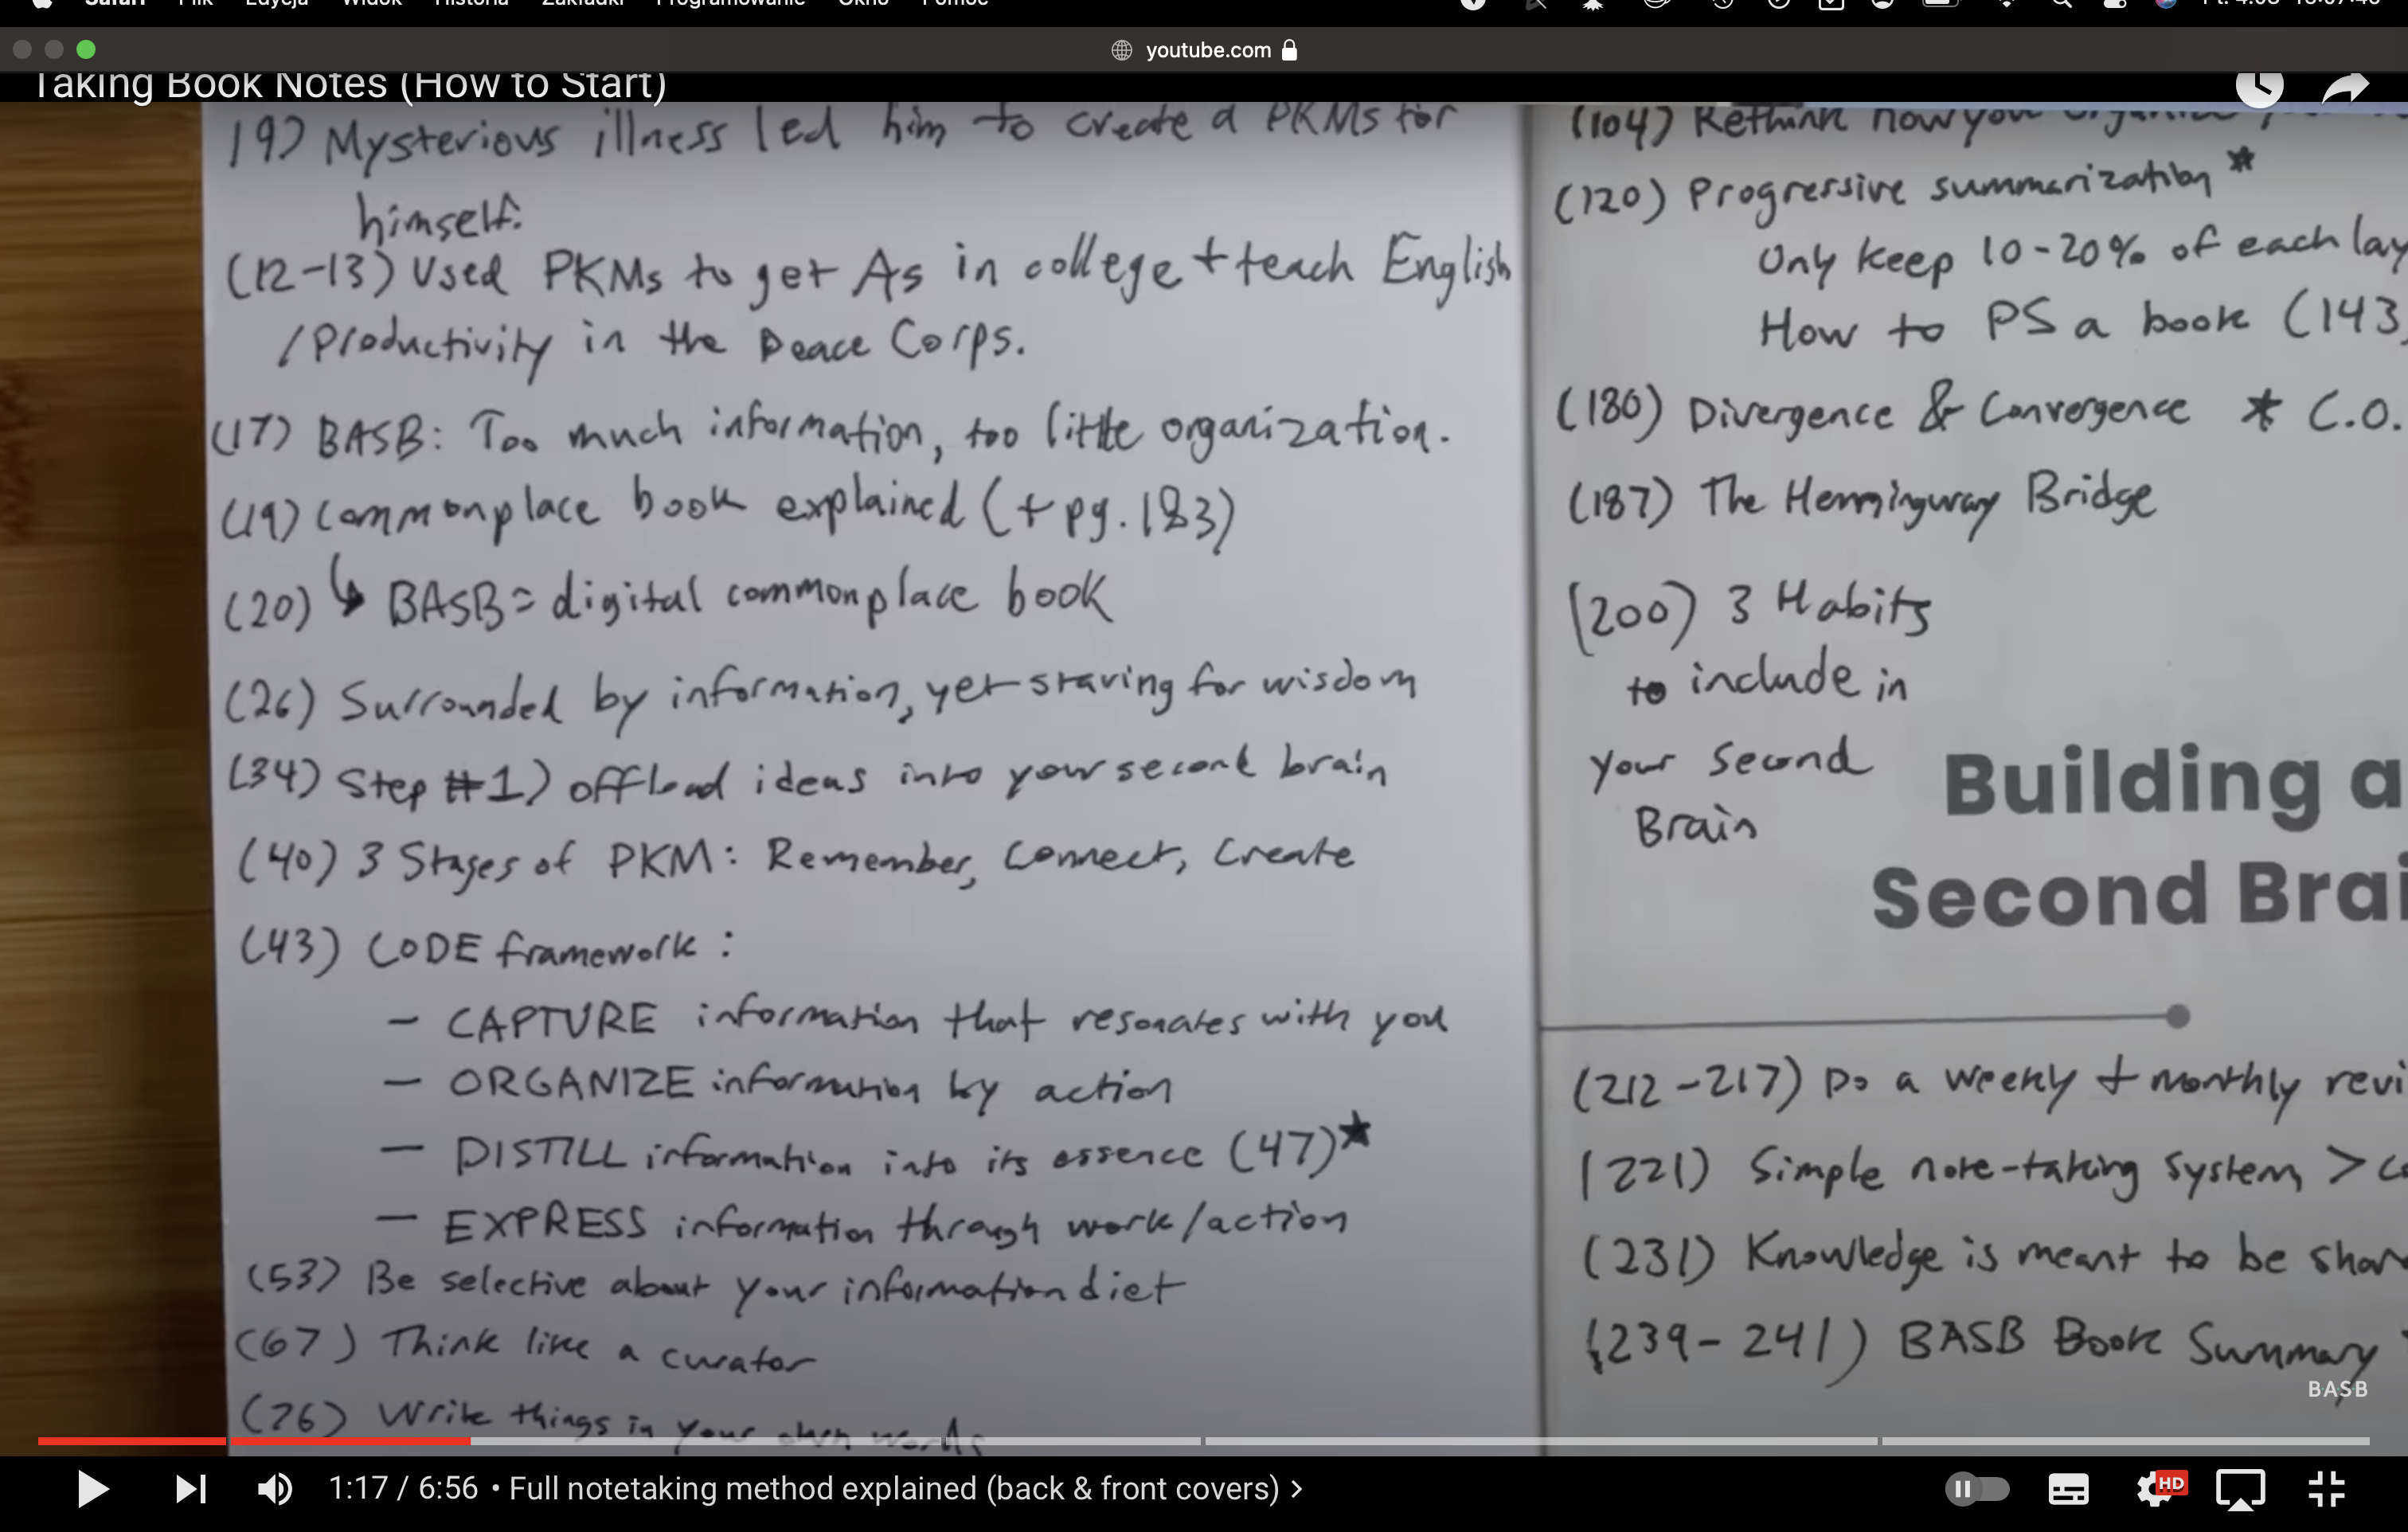 Safari Plik Edycja Widok Historia Zakładki Programowanie Okno Pomoc
youtube.com
Taking Book Notes (How to Start)
19) Mysterious illness led him to create a PKMs for
himself.
(12-13) Used PKMs to get As in college + teach English
/Productivity in the Peace Corps.
(17) BASB: Too much information, too little organization.
(19) commonplace book explained (+ pg. 183)
(20) ↳ BASB = digital commonplace book
(26) Surrounded by information, yet starving for wisdom
(34) Step #1) offload ideas into your second brain
(40) 3 Stages of PKM: Remember, Connect, Create
(43) CODE framework:
— CAPTURE information that resonates with you
— ORGANIZE information by action
— DISTILL information into its essence (47)★
— EXPRESS information through work/action
(53) Be selective about your information diet
(67) Think like a curator
(76) Write things in your own words
(104) Rethink how you organize
(120) Progressive summarization *
Only keep 10-20% of each lay
How to PS a book (143
(180) Divergence & Convergence * C.O.
(187) The Hemmingway Bridge
(200) 3 Habits
to include in
your Second
Brain
Building a
Second Brai
(212-217) Do a weekly + monthly revi
(221) Simple note-taking system >
(231) Knowledge is meant to be shar
(239-241) BASB Book Summary
BASB
1:17 / 6:56 • Full notetaking method explained (back & front covers) >
HD